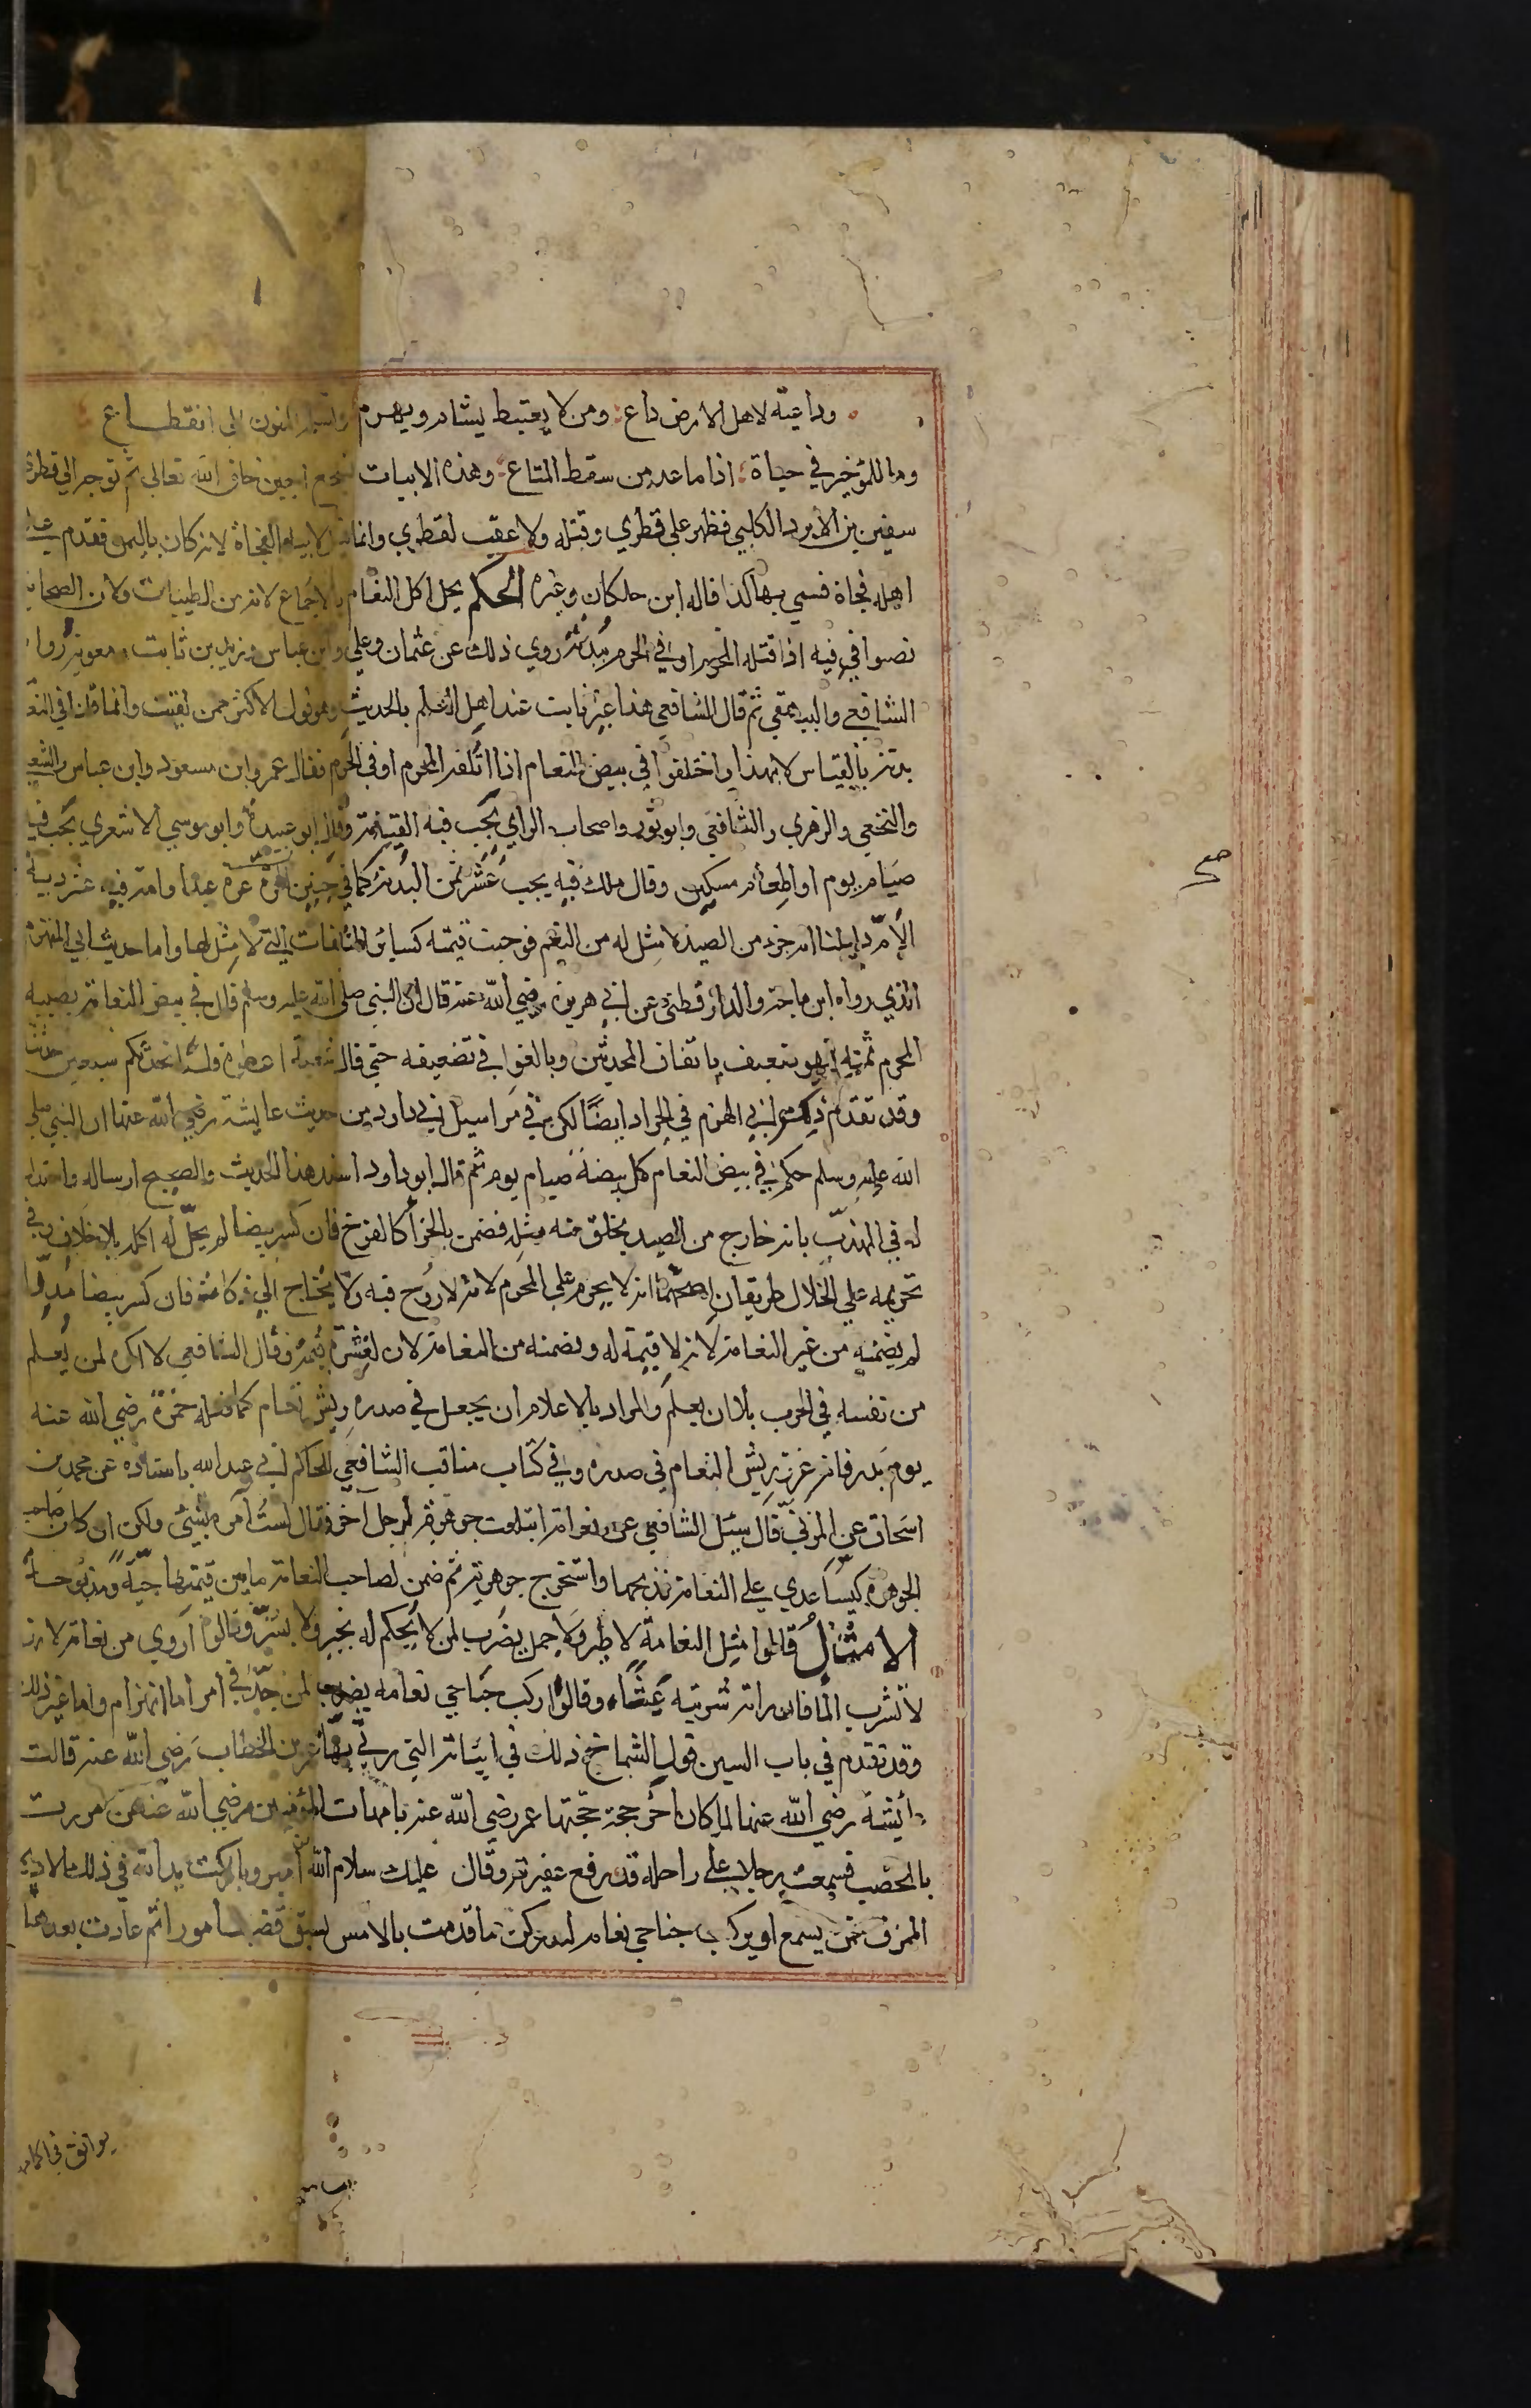 وداعية لاهل الارض داع ومن لا يعتبط يسام ويهرم وتسلمه المنون الى انقطاع
وما للمؤ خير في حياة اذا ما عد من سقط المتاع وهذه الابيات تشجع اجبن خلق الله تعالى ثم توجه الي قطري
سفين بن الابرد الكلبي فظهر على قطري وقتله ولا عقب لقطري وانما قيل لابيه الفجاة لانه كان باليمن فقدم على
اهله فجاة فسمي بها كذا قاله ابن خلكان وغيره الحكم يحل اكل النعام بالاجماع لانه من الطيبات ولان الصحابة
نصوا في فيه اذا قتله المحرم او في الحرم ببدنة روي ذلك عن عثمان وعلي وابن عباس وزيد بن ثابت ومعوية رواه
الشافعي والبيهقي ثم قال الشافعي هذا غير ثابت عند اهل العلم بالحديث وهو قول الاكثر ممن لقيت وانما قلنا في النعامة
بدنة بالقياس لا بهذا واختلفوا في بيض النعام اذا اتلفه المحرم او في الحرم فقال عمر وابن مسعود وابن عباس والشعبي
والنخعي والزهري والشافعي وابو ثور واصحاب الراي يجب فيه القيمة وقال ابو عبيدة وابو موسي الاشعري يجب فيه
صيام يوم او اطعام مسكين وقال ملك فيه يجب عشر ثمن البدنة كما في جنين الحرة غرة عبد او امة فيه عشر دية
الام دليلنا انه جزء من الصيد لا مثل له من النعم فوجبت قيمته كسائر المتلفات التي لا مثل لها واما حديث ابي المهزم
الذي رواه ابن ماجة والدارقطني عن ابي هريرة رضي الله عنه قال ان النبي صلى الله عليه وسلم قال في بيض النعامة يصيبه
المحرم ثمنه فهو ضعيف باتفاق المحدثين وبالغوا في تضعيفه حتى قال شعبة اعطوه فلسا يحدثكم سبعين حديثا
وقد تقدم ذكر ابي المهزم في الجراد ايضا لكن في مراسيل ابي داود من حديث عايشة رضي الله عنها ان النبي صلى
الله عليه وسلم حكم في بيض النعام كل بيضة صيام يوم ثم قال ابو داود اسند هذا الحديث والصحيح ارساله واستدل
له في المهذب بانه خارج من الصيد يخلق منه مثله فضمن بالجزا كالفرخ فان كسر بيضا لم يحل له اكله بلا خلاف وفي
تحريمه على الحلال طريقان اصحهما انه لا يحرم على المحرم لانه لا روح فيه ولا يحتاج الى ذكاة فان كسر بيضا مذرا
لم يضمنه من غير النعامة لانه لا قيمة له ويضمنه من النعامة لان لقشره قيمة وقال الشافعي لا اكره لمن يعلم
من نفسه في الحرب بلاء ان يعلم والمراد بالاعلام ان يجعل في صدره ريش نعام كما فعله حمزة رضي الله عنه
يوم بدر فانه غرز ريش النعام في صدره وفي كتاب مناقب الشافعي للحاكم ابي عبد الله باسناده عن محمد بن
اسحاق عن المزني قال سئل الشافعي عن نعامة ابتلعت جوهرة لرجل آخر فقال لست آمره بشئ ولكن ان كان صاحب
الجوهرة كيسا عدي على النعامة فذبحها واستخرج جوهرته ثم ضمن لصاحب النعامة ما بين قيمتها حية ومذبوحة
الامثال قالوا مثل النعامة لا طير ولا جمل يضرب لمن لا يحكم له بخير ولا بشر وقالوا اروي من نعامة لانها
لا تشرب الما فان راته شربته عبثا وقالوا ركب جناحي نعامة يضرب لمن جد في امر اما انهزام واما غير ذلك
وقد تقدم في باب السين قول الشماخ ذلك في ابياته التي رثى بها عمر بن الخطاب رضي الله عنه قالت
عائشة رضي الله عنها لما كان آخر حجة حجها عمر رضي الله عنه بامهات المؤمنين رضي الله عنهن مررت
بالمحصب فسمعت رجلا على راحلة قد رفع عقيرته وقال عليك سلام الله من امير وباركت يد الله في ذلك الاديم
الممزق فمن يسمع او يركب جناحي نعامة ليدرك ما قدمت بالامس يسبق قضيت امورا ثم غادرت بعدها
بوائق في اكمامها
صح